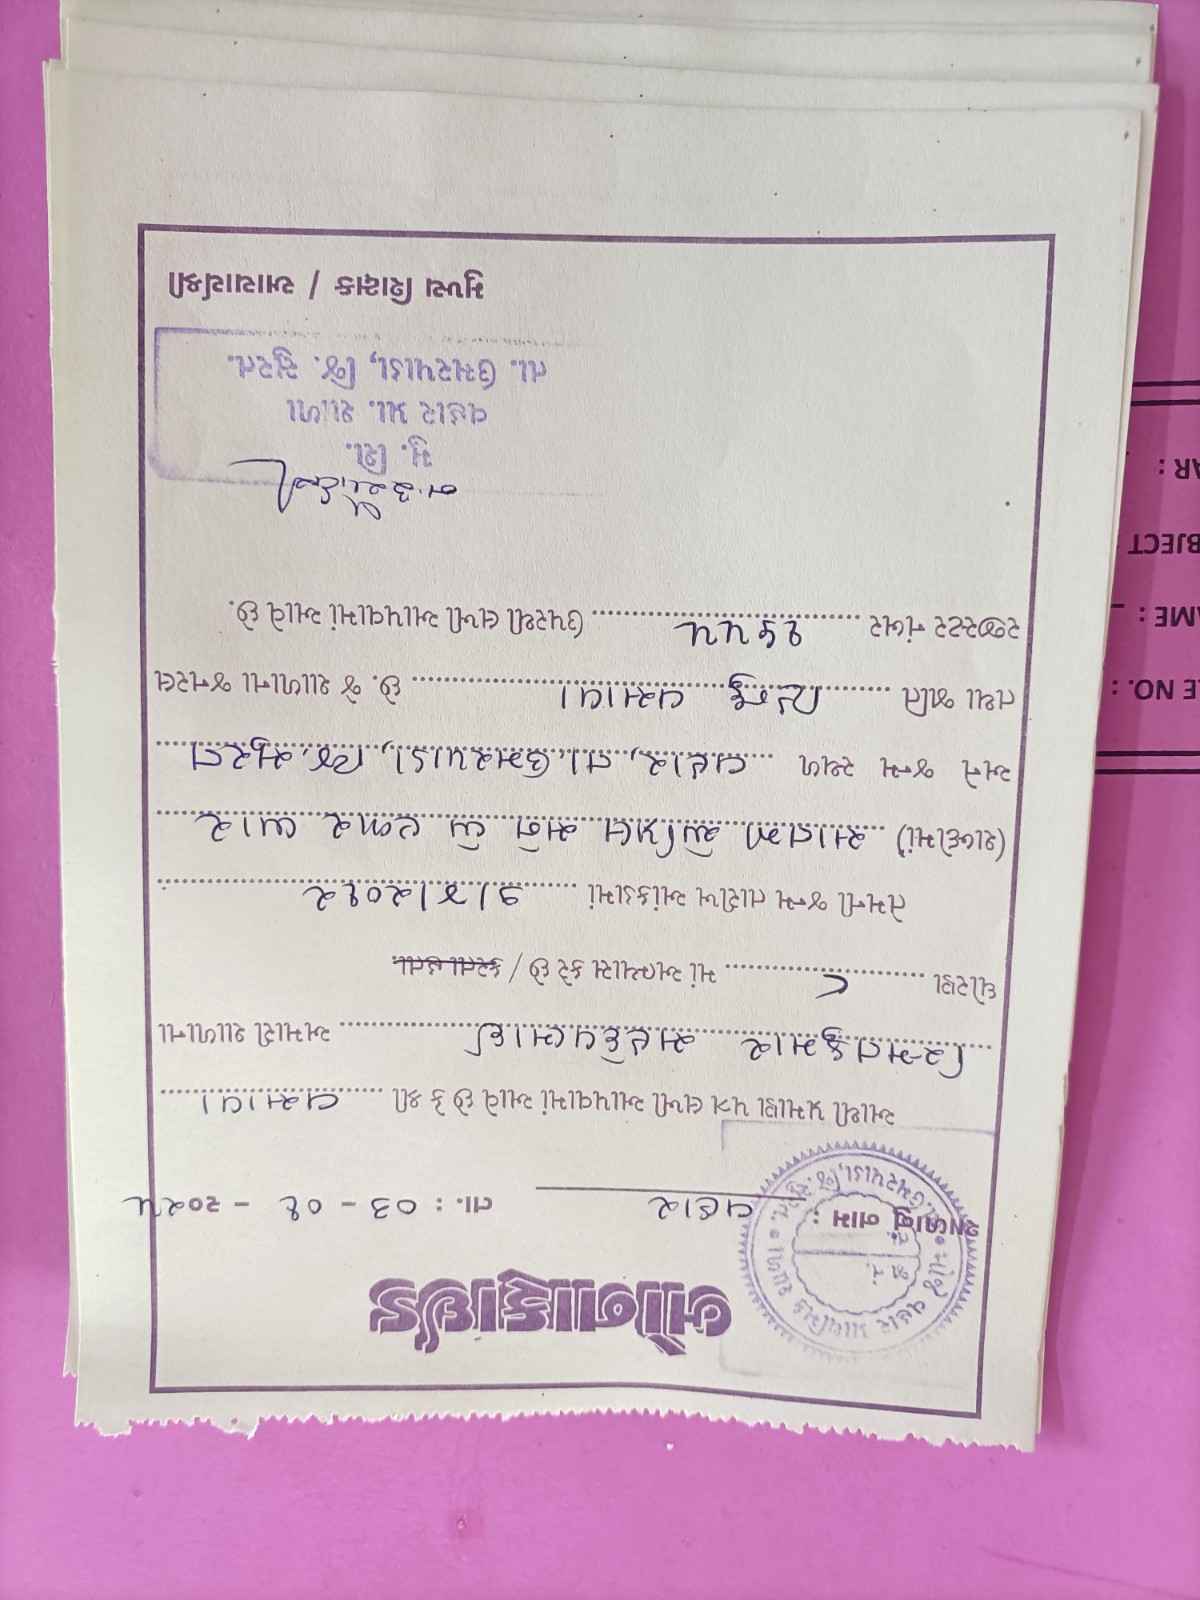 બોનાફાઈડ
શાળાનું નામ : વહાર તા. : 03 - 0૮ - ૨૦૨૫
આથી પ્રમાણ પત્ર લખી આપવામાં આવે છે કે શ્રી વસાવા
મહદેવભાઈ અમારી શાળાના
ધોરણ ૮ માં અભ્યાસ કરે છે / કરતા હતા.
તેમની જન્મ તારીખ આંકડામાં ૭/૪/૨૦૧૨
(શબ્દોમાં) સાતમી એપ્રિલ સને બે હજાર બાર
અને જન્મ સ્થળ વહાર, તા. ઉમરપાડા, જિ. સુરત
તથા જાતિ હિન્દુ વસાવા છે. જે શાળાના જનરલ
રજીસ્ટર નંબર ૧૬૫૫ ઉપરથી લખી આપવામાં આવે છે.
મુ. શિ.
વહાર પ્રા. શાળા
તા. ઉમરપાડા, જિ. સુરત.
મુખ્ય શિક્ષક / આચાર્યશ્રી
LE NO. :
AME :
BJECT
AR :